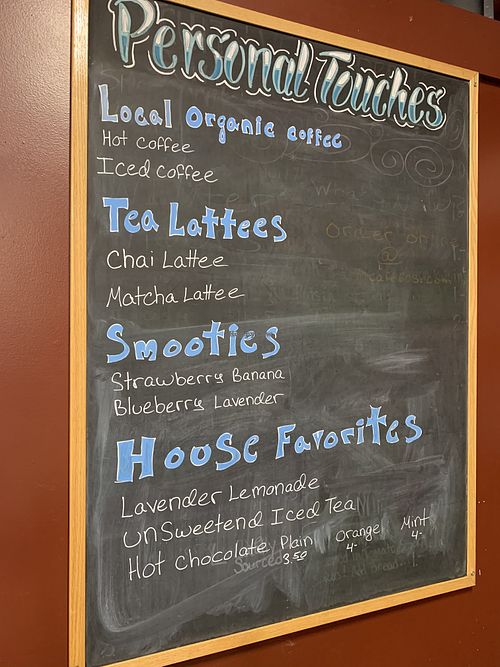 Personal Touches
Local Organic coffee
Hot coffee
Iced coffee
Tea Lattees
Chai Lattee
Matcha Lattee
Smooties
Strawberry Banana
Blueberry Lavender
House Favorites
Lavender Lemonade
unSweetend Iced Tea
Hot Chocolate Plain Orange Mint
3.50 4- 4-